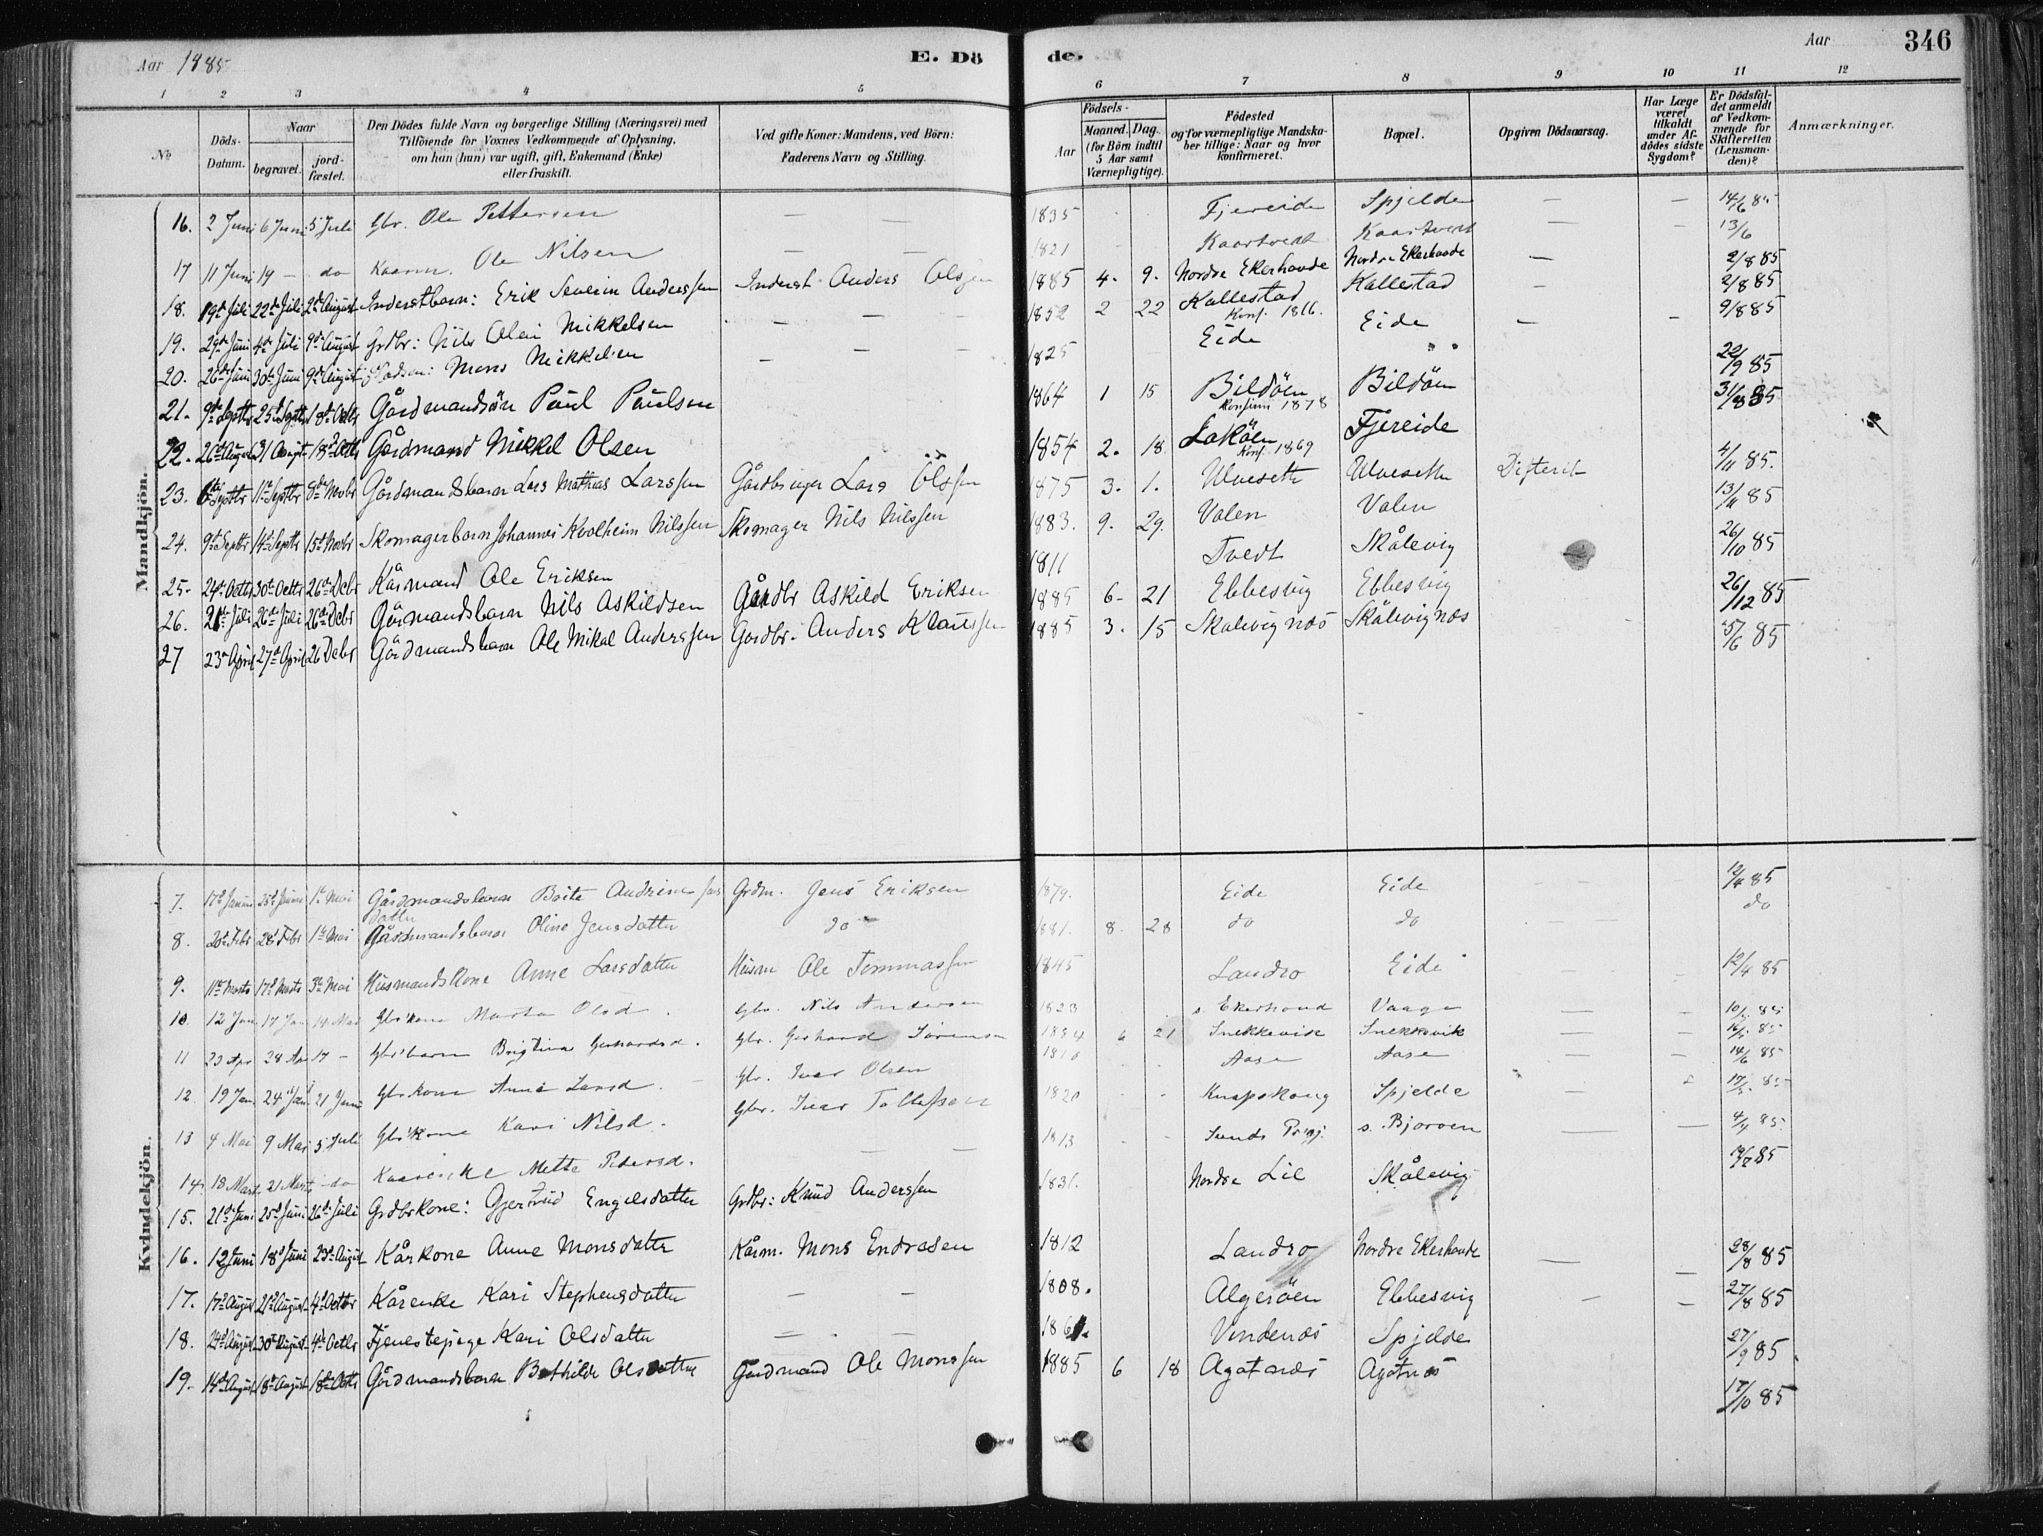 Aar 1885 E. Dö
de. Aar 346
1 2 3 4 5 6 7 8 9 10 11 12
No
Döds-Datum.
Naar
begravet.
jord-fæstet.
Den Dödes fulde Navn og borgerlige Stilling (Næringsvei) med
Tilföiende for Voxnes Vedkommende af Oplysning,
om han (hun) var ugift, gift, Enkemand (Enke)
eller fraskilt.
Ved gifte Koner: Mandens, ved Börn:
Faderens Navn og Stilling.
Födsels-
Aar
Maaned. Dag.
(for Börn indtil
5 Aar samt
Værnepligtige).
Födested
og for værnepligtige Mandska-
ber tillige: Naar og hvor
konfirmeret.
Bopæl.
Opgiven Dödsaarsag.
Har Læge
været
tilkaldt
under Af-
dödes sidste
Sygdom?
Er Dödsfal-
det anmeldt
af Vedkom-
mende for
Skifteretten
(Lensman-
den)?
Anmærkninger.
Mandkjön.
16. 2 Juni 6 Juni 5 Juli Gbr. Ole Pettersen — — 1835 Fjereide Spjelde — — 14/6 85
17 11 Juni 19 — do Kaarm. Ole Nilsen — — 1821 Kaartvedt Kaartvedt — — 13/6
18. 19de Juli 22de Juli 2den August Inderstbarn: Erik Severin Anderssen Inderst Anders Olsen 1885 4. 9. Nordre Ekerhovde Nordre Ekerhovde — 2/8 85
19. 29de Juni 4de Juli 9de August Grdbr: Nils Olai Mikkelsen — — 1852 2 22 Kallestad Konf. 1866. Kallestad — 2/8 85
20. 26de Juni 30te Juni 9de August Mons Mikkelsen — — 1825 Eide Eide — — 9/8 85
21. 9de Septbr 25de Septbr 18de Octbr Gårdmandsön Paul Paulsen 1864 1 15 Bildöen Konfirm 1878 Bildöen 22/9 85
22. 26de August 31 August 18de Octb Gårdmand Mikkel Olsen 1854 2. 18. Loköen Konf. 1869 Fjereide 31/8 85
23. 6te Septbr 11te Septbr 8de Novbr Gårdmandsbarn Lars Mathias Larssen Gårdbruger Lars Olssen 1875 3. 1. Ulveseth Ulveseth Difterit 4/11 85.
24. 9de Septbr 14de Septbr 15de Novbr Skomagerbarn Johannes Kvalheim Nilssen Skomager Nils Nilssen 1883. 9. 29. Valen Valen 13/11 85
25. 24de Octbr 30te Octbr 26de Debr Kårmand Ole Eriksen 1811 Tvedt Skålevig 26/10 85
26. 21de Juli 26de Juli 26de Debr Gårmandsbarn Nils Askildsen Gårdbr Askild Eriksen 1885 6- 21 Ebbesvig Ebbesvig 26/12 85
27 23de April 27de April 26 Debr Gårdmandsbarn Ole Mikal Anderssen Gardbr. Anders Klaussen 1885 3. 15 Skalevignæs Skålevignæs 5/6 85
Kvindekjön.
7. 17de Januar 25de Januar 1te Mai Gårdmandsbarn Brite Andrine Jensdatter Grdm. Jens Eriksen 1879. Eide Eide 12/4 85
8. 20de Febr 28de Febr 1te Mai Gårdmandsbarn Oline Jensdatter do 1881. 8. 28 do do do
9. 11te Marts 17de Marts 3de Mai Husmandskone Anne Larsdatter Husm Ole Tommassen 1845 Landro Eide 12/4 85
10. 12 Jan 17 Jan 14 Mai Gbr kone Marta Olsd. Gbr. Nils Andersen 1823 s. Ekerhovd Vaage — — 85
11 23 Apr 28 Apr 17 — Gbr barn Brigtine Gerhardsd. Gbr. Gerhard Sörensen 1884 6 21 Snekkevik Snekkevik — — 85
12. 19 Jan. 24 Jan. 21 Juni Gbr kone Anna Larsd. Gbr. Ivar Olsen 1810 Aase Aase — — 14/6 85
13 4 Mai 9 Mai 5 Juli Gbr kone Kari Nilsd. Gbr. Ivar Tollefsen 1820 Knapskong Spjelde — 17/5 85
14. 18 Mars 21 Mars — do Kaarenke Mette Pedersd. — — 1813 Sunds Prgj. s. Bjoroen — — 4/4 85.
15. 21de Juni 25de Juni 26de Juli Grdbrkone: Gjertrud Engelsdatter Grdbr: Knud Anderssen 1831. Nordre Lie Skålevig 85
16. 12 Juni 18de Juni 23de August Kårkone Anne Monsdatter Kårm. Mons Endresen 1812 Landro Nordre Ekerhovde — 23/8 85
17. 17de August 21de August 4de Octbr Kårenke Kari Stephensdatter — — 1808. Algeröen Ebbesvig — — 27/8 85
18. 24de August 30te August 4de Octbr Tjenestepige Kari Olsdatter — — 1861. Vindenæs Spjelde 27/9 85
19. 14de August 18de August 18de Octb Gårdmandsbarn Bothilde Olsdatter Gardmand Ole Monssen 1885 6 18 Agotnæs Agotnæs 17/10 85